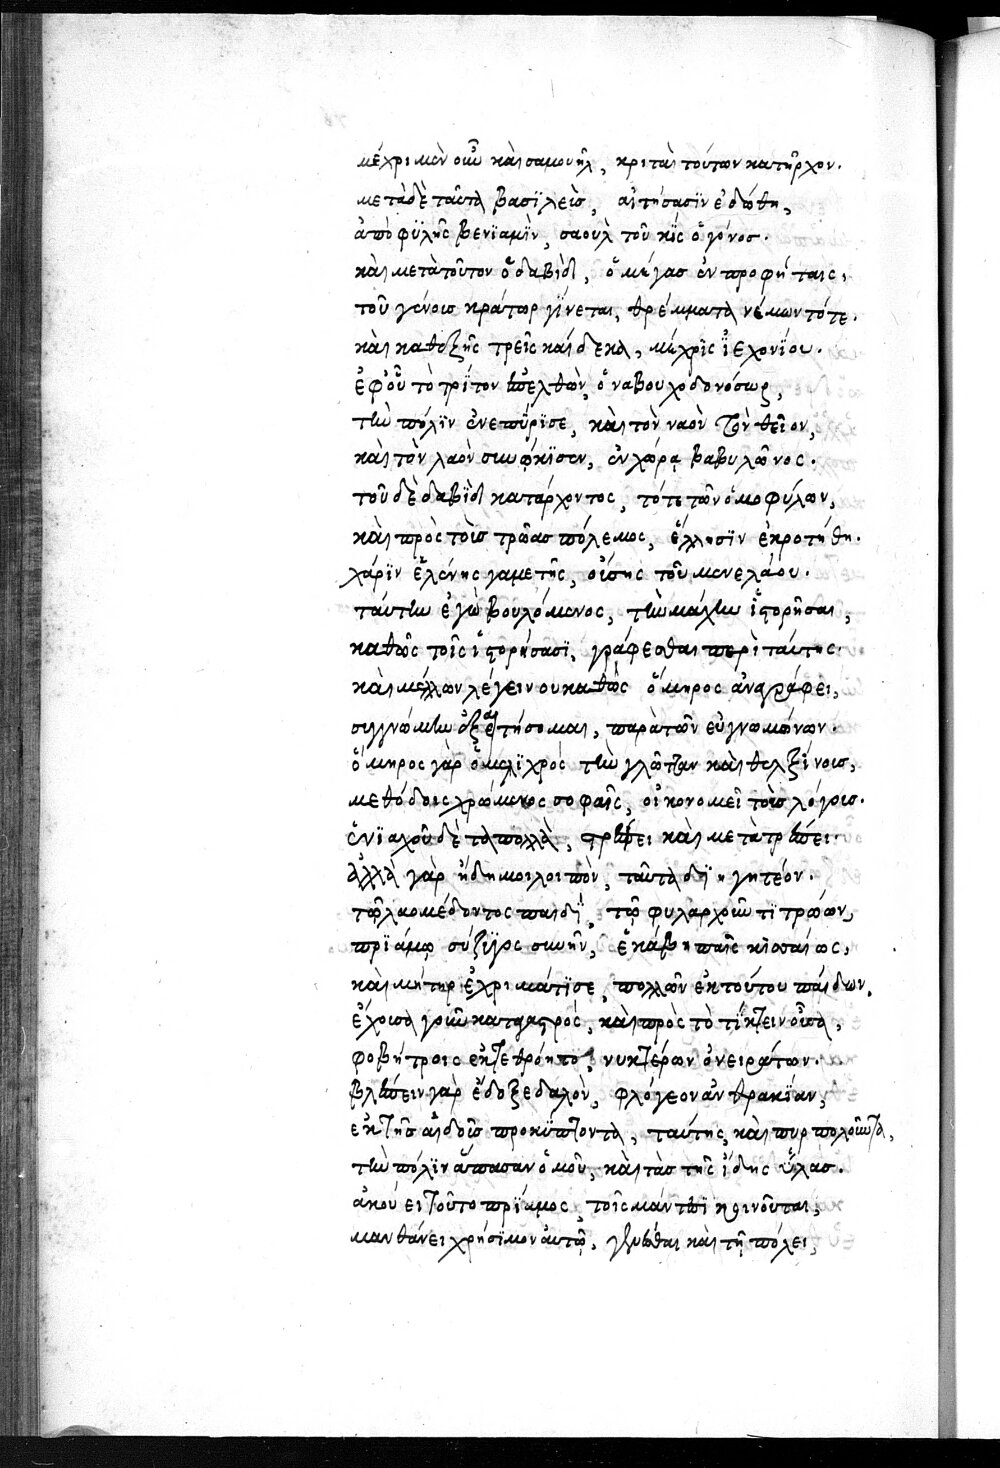 μέχρι μὲν οὖν καὶ σαμουὴλ, κριταὶ τούτων κατῆρχον.
μετὰ δὲ ταῦτα βασϊλεῖς, αἰτήσασϊν ἐδόθη,
ἀπὸ φϋλῆς βενϊαμὶν, σαοὺλ τοῦ κὶς ὁ γόνος.
καὶ μετὰ τοῦτον ὁ δαβὶδ, ὁ μέγας ἐν προφήταις,
τοῦ γένους κράτωρ γίνεται, θρέμματα νέμων τότε.
καὶ καθεξῆς τρεῖς καίδεκα, μέχρϊς ἰεχονίου.
ἐφ' οὗ τὸ τρίτον ἐπελθὼν, ὁ ναβουχοδονόσωρ,
τὴν πόλϊν ἐνεπύρϊσε, καὶ τὸν ναὸν τὸν θεῖον,
καὶ τὸν λαὸν συνῴκισεν, ἐν χώρᾳ βαβυλῶνος.
τοῦ δὲ δαβὶδ κατάρχοντος, τότε τῶν ὁμοφύλων,
καὶ πρὸς τοὺς τρῶας πόλεμος, ἕλλησϊν ἐκροτήθη.
χάρϊν ἑλένης γαμετῆς, οὔσης τοῦ μενελάου.
ταύτην ἐγὼ βουλόμενος, τὴν μάχην ἱστορῆσαι,
καθὼς τοῖς ἱστορήσασϊ, γράφεσθαι περὶ ταύτης.
καὶ μέλλων λέγειν οὐ καθὼς ὅμηρος ἀναγράφει,
συγγνώμην ἐξαιτήσομαι, παρὰ τῶν εὐγνωμόνων.
ὅμηρος γὰρ ὁ μελϊχρὸς τὴν γλῶτταν καὶ θελξίνους,
μεθόδοις χρώμενος σοφαῖς, οἰκονομεῖ τοὺς λόγους.
ἐνϊαχοῦ δὲ τὰ πολλὰ, στρέφει καὶ μετατρέπει.
ἀλλὰ γὰρ ἤδη μοι λοιπὸν, ταῦτα δϊηγητέον.
τῷ λαομέδοντος παιδὶ, τῷ φυλαρχοῦντι τρώων,
πρϊάμῳ σύζϋγος συνῆν, ἑκάβη παῖς κισσαίως,
καὶ μήτηρ ἐχρημάτϊσε, πολλῶν ἐκ τούτου παίδων.
ἔχουσα γοῦν κατὰ γαστρὸς, καὶ πρὸς τὸ τίκτειν οὖσα,
φοβήτροις ἐξεθρόητο, νυκτέρων ὀνειράτων.
βλέπειν γὰρ ἔδοξε δαλὸν, φλόγεον ἀνθρακϊὰν,
ἐκ τῆς αἰδοῦς προκύπτοντα, ταύτης καὶ πυρπολοῦντα,
τὴν πόλϊν ἅπασαν ὁμοῦ, καὶ τὰς τῆς ἴδης ὕλας.
ἀκούει τοῦτο πρϊαμος, τοῖς μάντεσϊ κοινοῦται,
μανθάνει χρήσϊμον αὐτῷ, γενέσθαι καὶ τῇ πόλει,